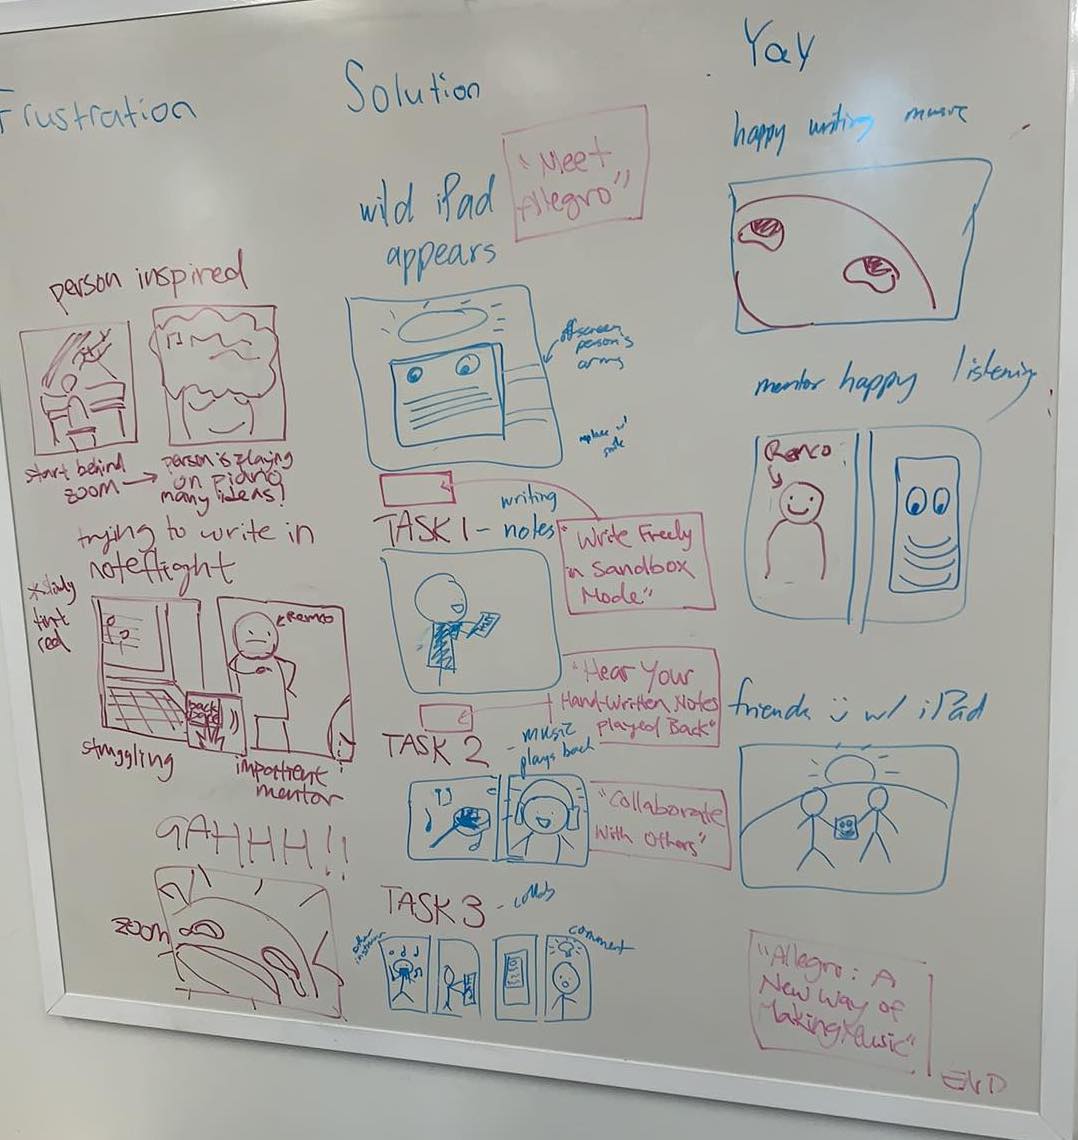 Frustration
person inspired
start behind
zoom →
person is playing
on piano
many ideas!
trying to write in
noteflight
*slowly
tint
red
Remco
back
space
struggling
impatient
mentor
GAHHH!!
zoom
Solution
"Meet
Allegro"
wild iPad
appears
offscreen
person's
arms
replace w/
smile
TASK 1 - writing
notes
"Write Freely
in Sandbox
Mode"
"Hear Your
Hand-Written Notes
Played Back"
TASK 2
- music
plays back
"Collaborate
With Others"
TASK 3 - collab
comment
Yay
happy writing music
mentor happy listening
Remco
friends w/ iPad
"Allegro: A
New Way of
Making Music"
END